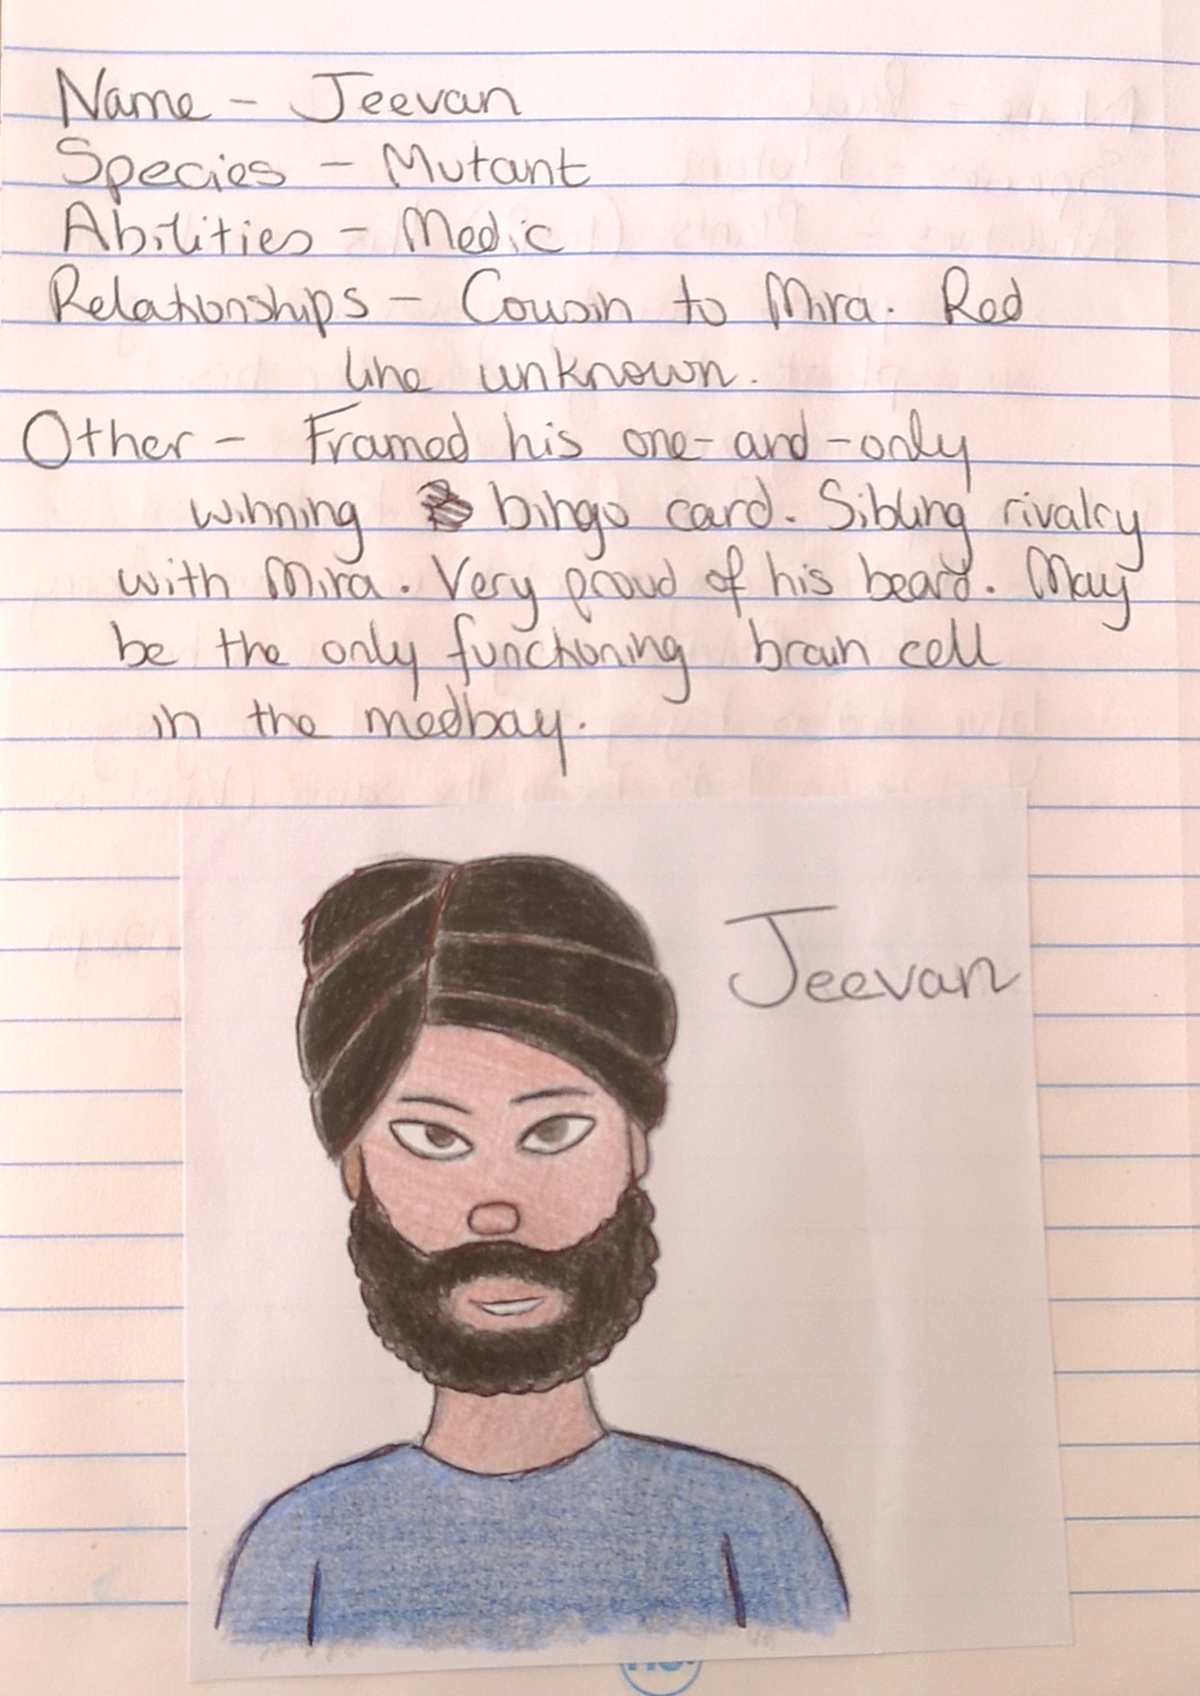 Name - Jeevan
Species - Mutant
Abilities - Medic
Relationships - Cousin to Mira. Red
line unknown.
Other - Framed his one-and-only
winning bingo card. Sibling rivalry
with Mira. Very proud of his beard. May
be the only functioning brain cell
in the medbay.
Jeevan